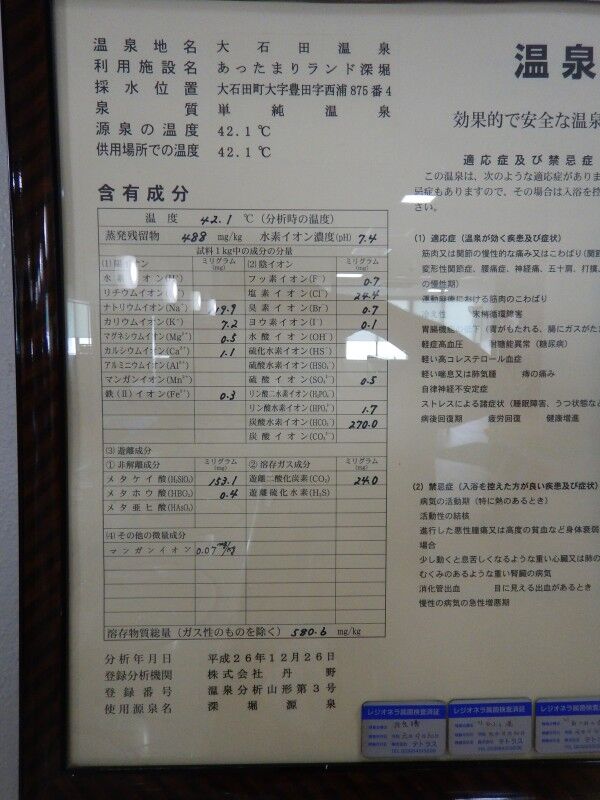 温泉地名 大石田温泉
利用施設名 あったまりランド深堀
採水位置 大石田町大字豊田字西浦875番4
泉質 単純温泉
源泉の温度 42.1℃
供用場所での温度 42.1℃
含有成分
温度 42.1 ℃（分析時の温度）
蒸発残留物 488 mg/kg 水素イオン濃度(pH) 7.4
試料1kg中の成分の分量
ミリグラム(mg) (2)陰イオン ミリグラム(mg)
フッ素イオン(F⁻) 0.7
リチウムイオン 塩素イオン(Cl⁻) 24.4
ナトリウムイオン(Na⁺) 臭素イオン(Br⁻) 0.7
カリウムイオン(K⁺) 7.2 ヨウ素イオン(I⁻) 0.1
マグネシウムイオン(Mg²⁺) 0.5 水酸イオン(OH⁻)
カルシウムイオン(Ca²⁺) 1.1 硫化水素イオン(HS⁻)
アルミニウムイオン(Al³⁺) 硫酸水素イオン(HSO₄⁻)
マンガンイオン(Mn²⁺) 硫酸イオン(SO₄²⁻) 0.5
鉄(Ⅱ)イオン(Fe²⁺) 0.3 リン酸二水素イオン(H₂PO₄⁻)
リン酸水素イオン(HPO₄²⁻) 1.7
炭酸水素イオン(HCO₃⁻) 270.0
炭酸イオン(CO₃²⁻)
(3)遊離成分
①非解離成分 ミリグラム(mg) ②溶存ガス成分 ミリグラム(mg)
メタケイ酸(H₂SiO₃) 153.1 遊離二酸化炭素(CO₂) 24.0
メタホウ酸(HBO₂) 0.4 遊離硫化水素(H₂S)
メタ亜ヒ酸(HAsO₂)
(4)その他の微量成分
マンガンイオン 0.07 mg/kg
溶存物質総量（ガス性のものを除く） 580.6 mg/kg
分析年月日 平成26年12月26日
登録分析機関 株式会社 丹野
登録番号 温泉分析山形第3号
使用源泉名 深堀源泉
温泉
効果的で安全な温泉
適応症及び禁忌症
この温泉は、次のような適応症がありま
忌症もありますので、その場合は入浴を控
さい。
(1) 適応症（温泉が効く疾患及び症状）
筋肉又は関節の慢性的な痛み又はこわばり（関節
変形性関節症、腰痛症、神経痛、五十肩、打撲、
の慢性期）
運動麻痺における筋肉のこわばり
冷え性 末梢循環障害
胃腸機能の低下（胃がもたれる、腸にガスがた
軽症高血圧 耐糖能異常（糖尿病）
軽い高コレステロール血症
軽い喘息又は肺気腫 痔の痛み
自律神経不安定症
ストレスによる諸症状（睡眠障害、うつ状態など
病後回復期 疲労回復 健康増進
(2) 禁忌症（入浴を控えた方が良い疾患及び症状）
病気の活動期（特に熱のあるとき）
活動性の結核
進行した悪性腫瘍又は高度の貧血など身体衰弱
場合
少し動くと息苦しくなるような重い心臓又は肺の
むくみのあるような重い腎臓の病気
消化管出血 目に見える出血があるとき
慢性の病気の急性増悪期
レジオネラ属菌検査済証
レジオネラ属菌検査済証
レジオネラ属菌検査
テトラス
テトラス